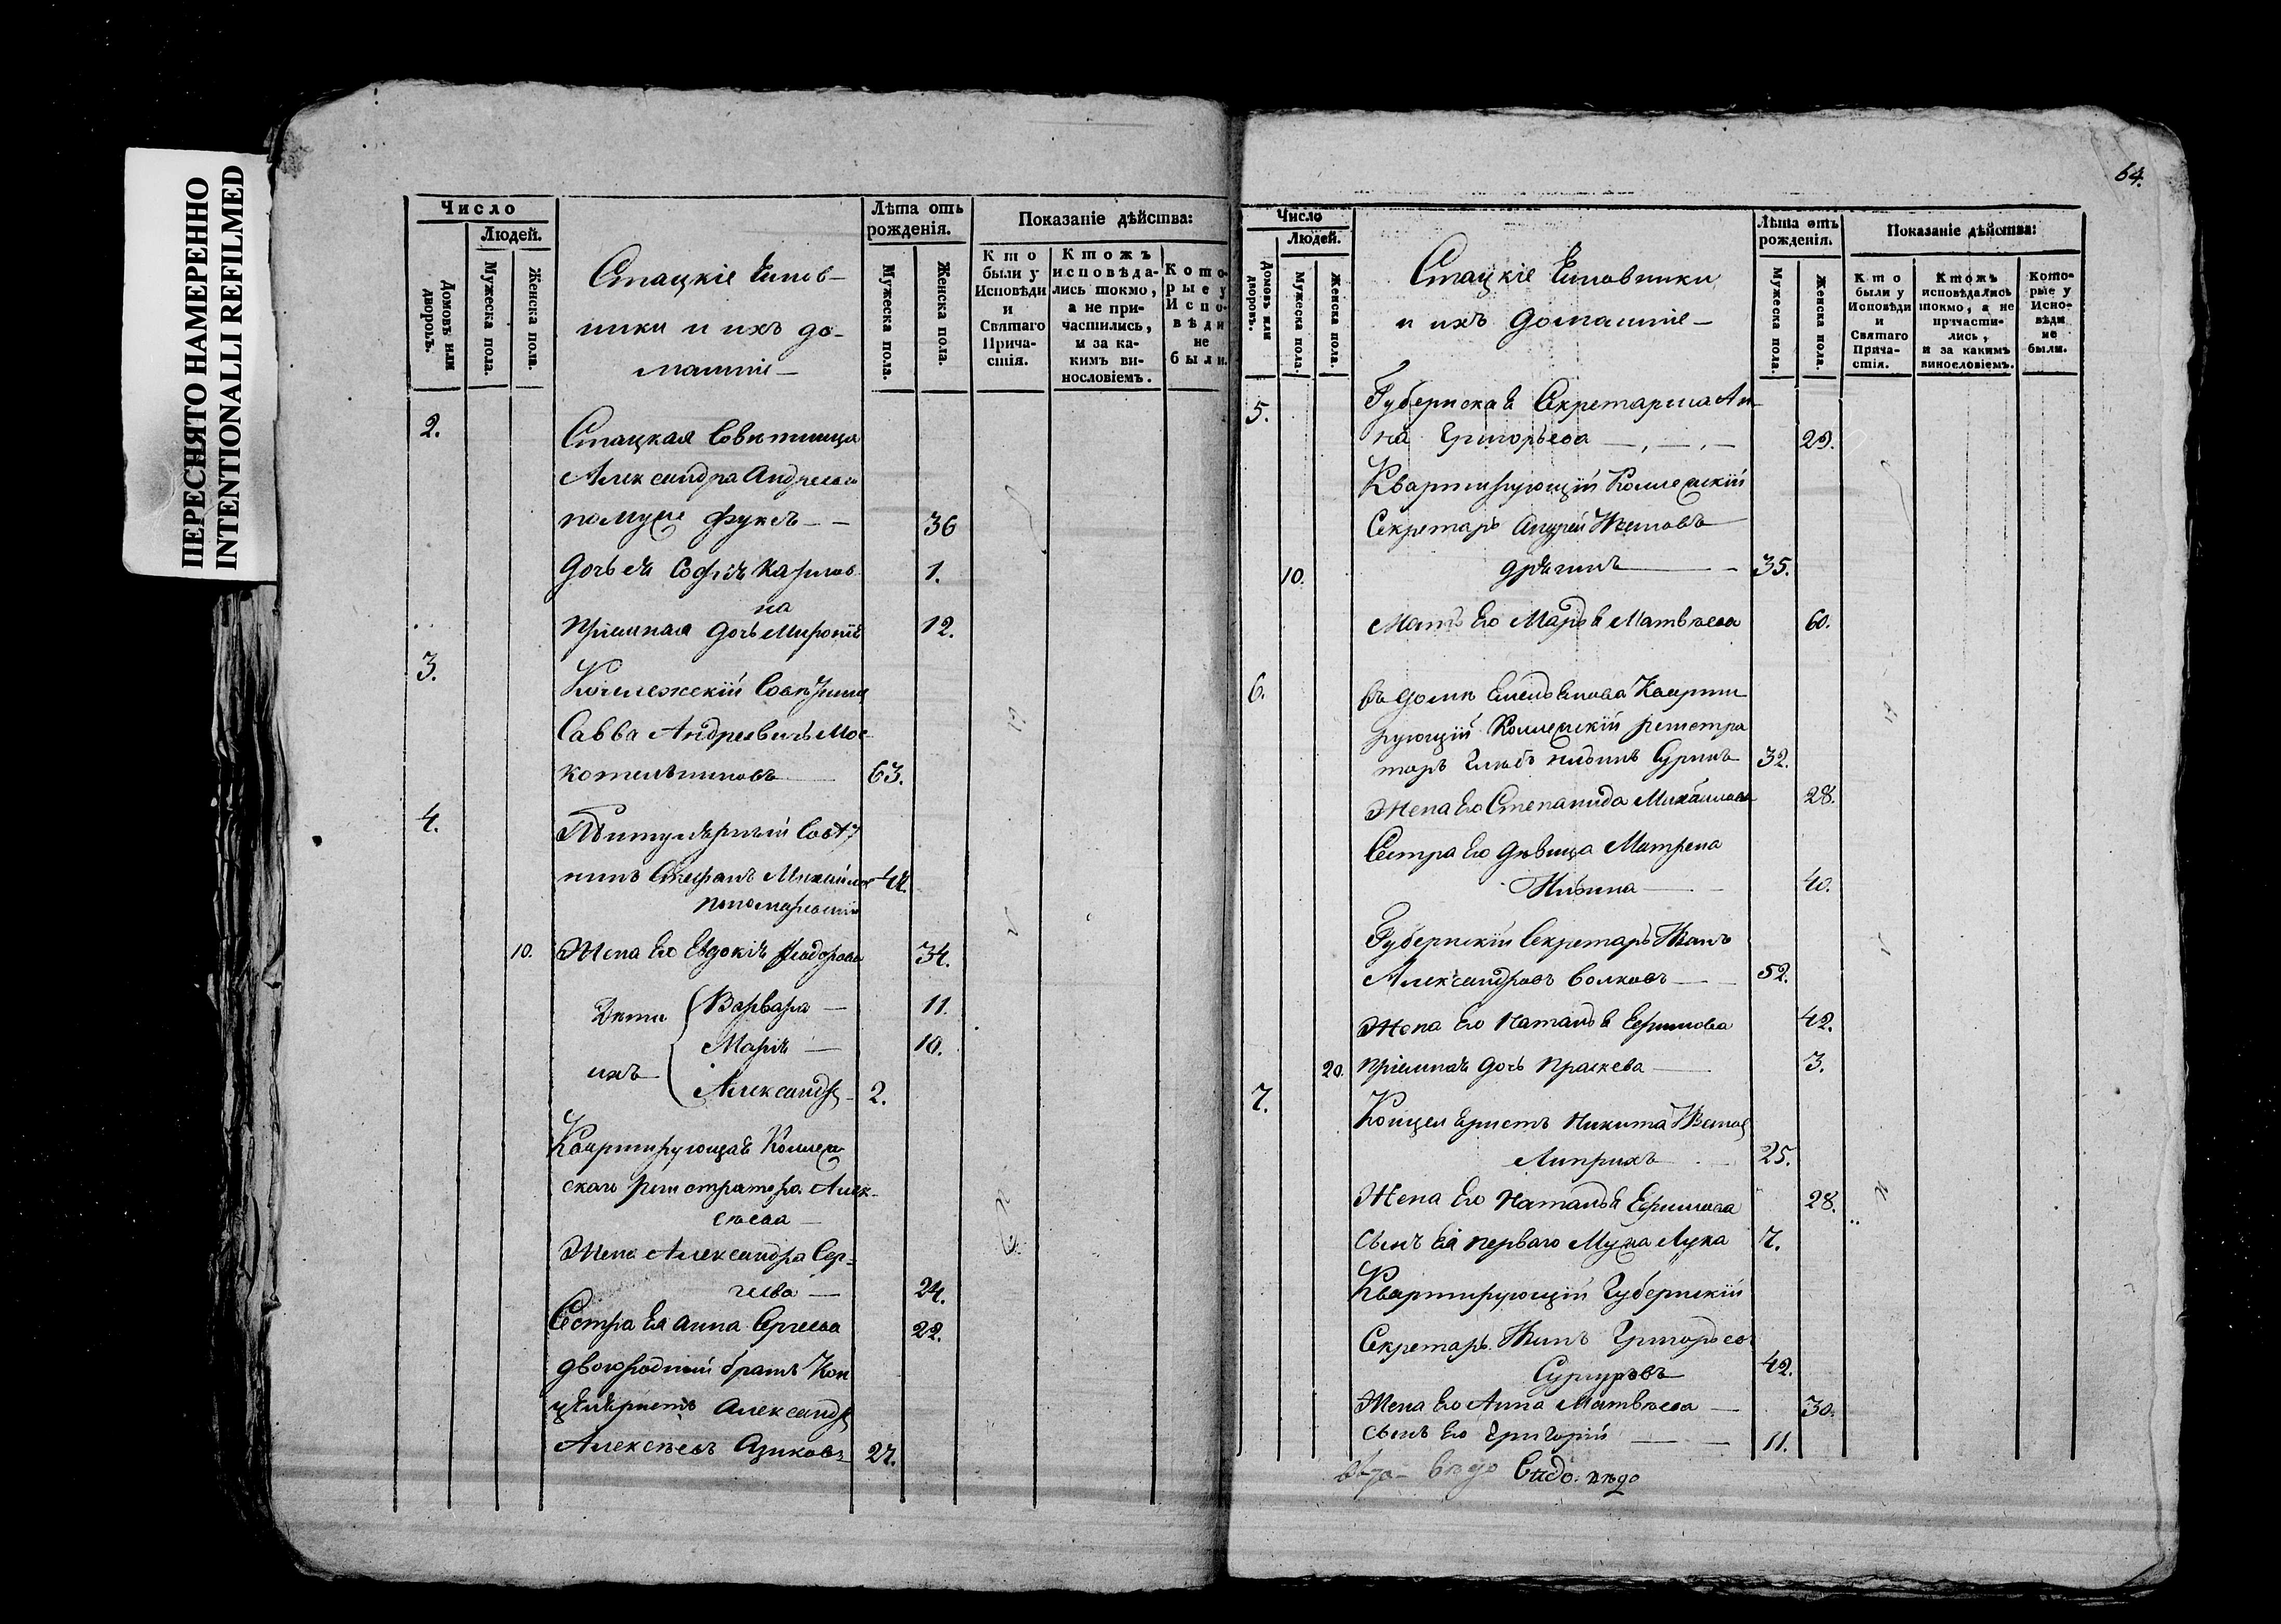 ПЕРЕСНЯТО НАМЕРЕННО
INTENTIONALLI REFILMED
Число
Людей.
Домовъ или дворовъ.
Мужеска пола.
Женска пола.
Стацкіе Чинов-
ники и ихъ до-
машніе
Лѣта отъ рожденія.
Мужеска пола.
Женска пола.
Показаніе дѣйства:
Кто были у Исповѣди и Святаго Причастія.
Ктожъ исповѣдались токмо, а не причастились, и за какимъ винословіемъ.
Которые у Исповѣди не были.
2. Стацкая Совѣтница
Александра Андреева
по муже Фуксъ 36
Дочь ея Софія Карлов
на 1.
Пріемная дочь 12.
3. Коллежскій Совѣтникъ
Савва Андреевичъ Мос-
котельниковъ 63.
4. Титулярный Совѣт
никъ Стефанъ Михайлов 42.
Пономаревъ
10. Жена его Евдокія Федорова 34.
Дѣти Варвара 11.
Марія 10.
ихъ Александръ 2.
Квартирующая Коллеж
скаго регистратора Алек-
сѣева
Жена Александра Сер-
геева 24.
Сестра ея Анна Сергеева 22.
двоюродный братъ Кан
целяристъ Александръ
Алексѣевъ Азиковъ 27.
64.
Число
Людей.
Домовъ или дворовъ.
Мужеска пола.
Женска пола.
Стацкіе Чиновники
и ихъ домашніе
Лѣта отъ рожденія.
Мужеска пола.
Женска пола.
Показаніе дѣйства:
Кто были у Исповѣди и Святаго Причастія.
Ктожъ исповѣдались токмо, а не причастились, и за какимъ винословіемъ.
Которые у Исповѣди не были.
5. Губернская Секретарша Ан
на Григорьева 29.
Квартирующій Коллежскій
Секретарь Андрей Ивановъ
10. 35.
Мать его Марья Матвѣева 60.
6. въ доме Емельянова Кварти
рующій Коллежскій регистра
торъ Глебъ Ильинъ Суринъ 32.
Жена его Степанида Михайлова 28.
Сестра его девица Матрена
Ильина 40.
Губернскій Секретарь Иванъ
Александровъ Волковъ 52.
Жена его Наталья Ефимова 42.
20. Пріемная дочь Праскева 3.
7. Концеляристъ Никита Иванов
25.
Жена его Наталья Ефимова 28.
Сынъ ея перваго мужа Лука 7.
Квартирующій Губернскій
Секретарь Иванъ Григорьев
Сургуровъ 42.
Жена его Анна Матвѣева 30.
Сынъ его Григорій 11.